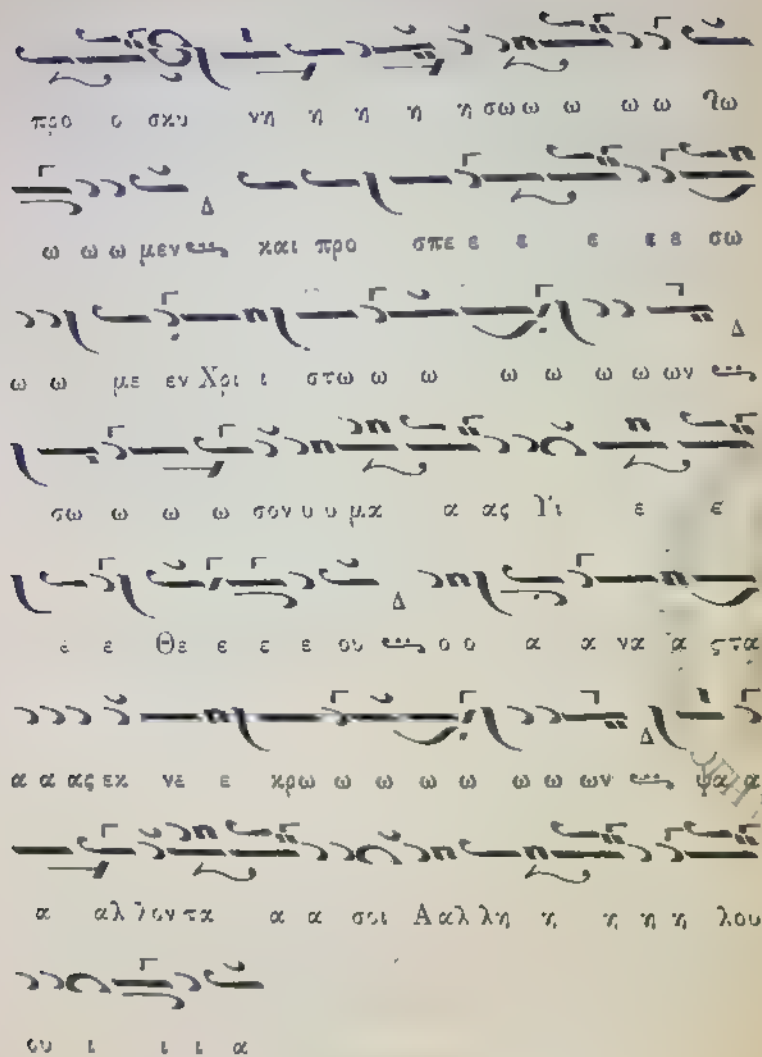 προ ο σκυ νη η η η η σω ω ω ω ω ϯω
ω ω ω μεν και προ σπε ε ε ε ε ε σω
ω ω με εν Χρι ι στω ω ω ω ω ω ω ων
σω ω ω ω σον υ υ μα α ας Υι ε ε
ε ε Θε ε ε ε ου ο ο α α να α ςτα
α α ας εκ νε ε κρω ω ω ω ω ω ω ων ψα α
α αλ λον τα α α σοι Α αλ λη η η η η λου
ου ι ι ι α